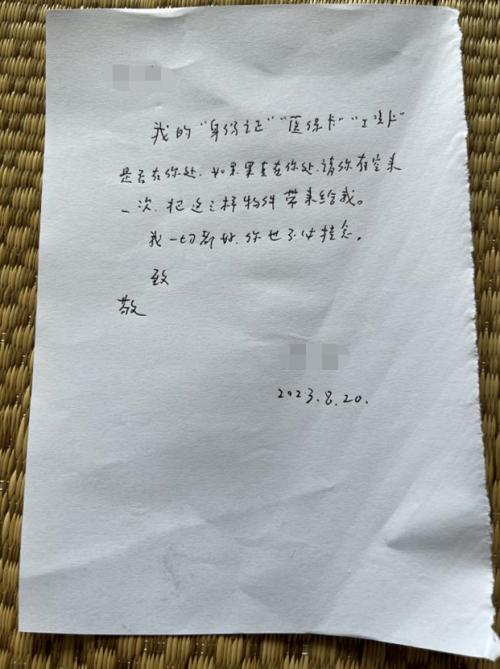 我的“身份证”“医保卡”“工资卡”
是否在你处.如果真在你处.请你有空来
一次.把这三样物件带来给我。
我一切都好.你也不必挂念。
致
敬
2023.8.20.